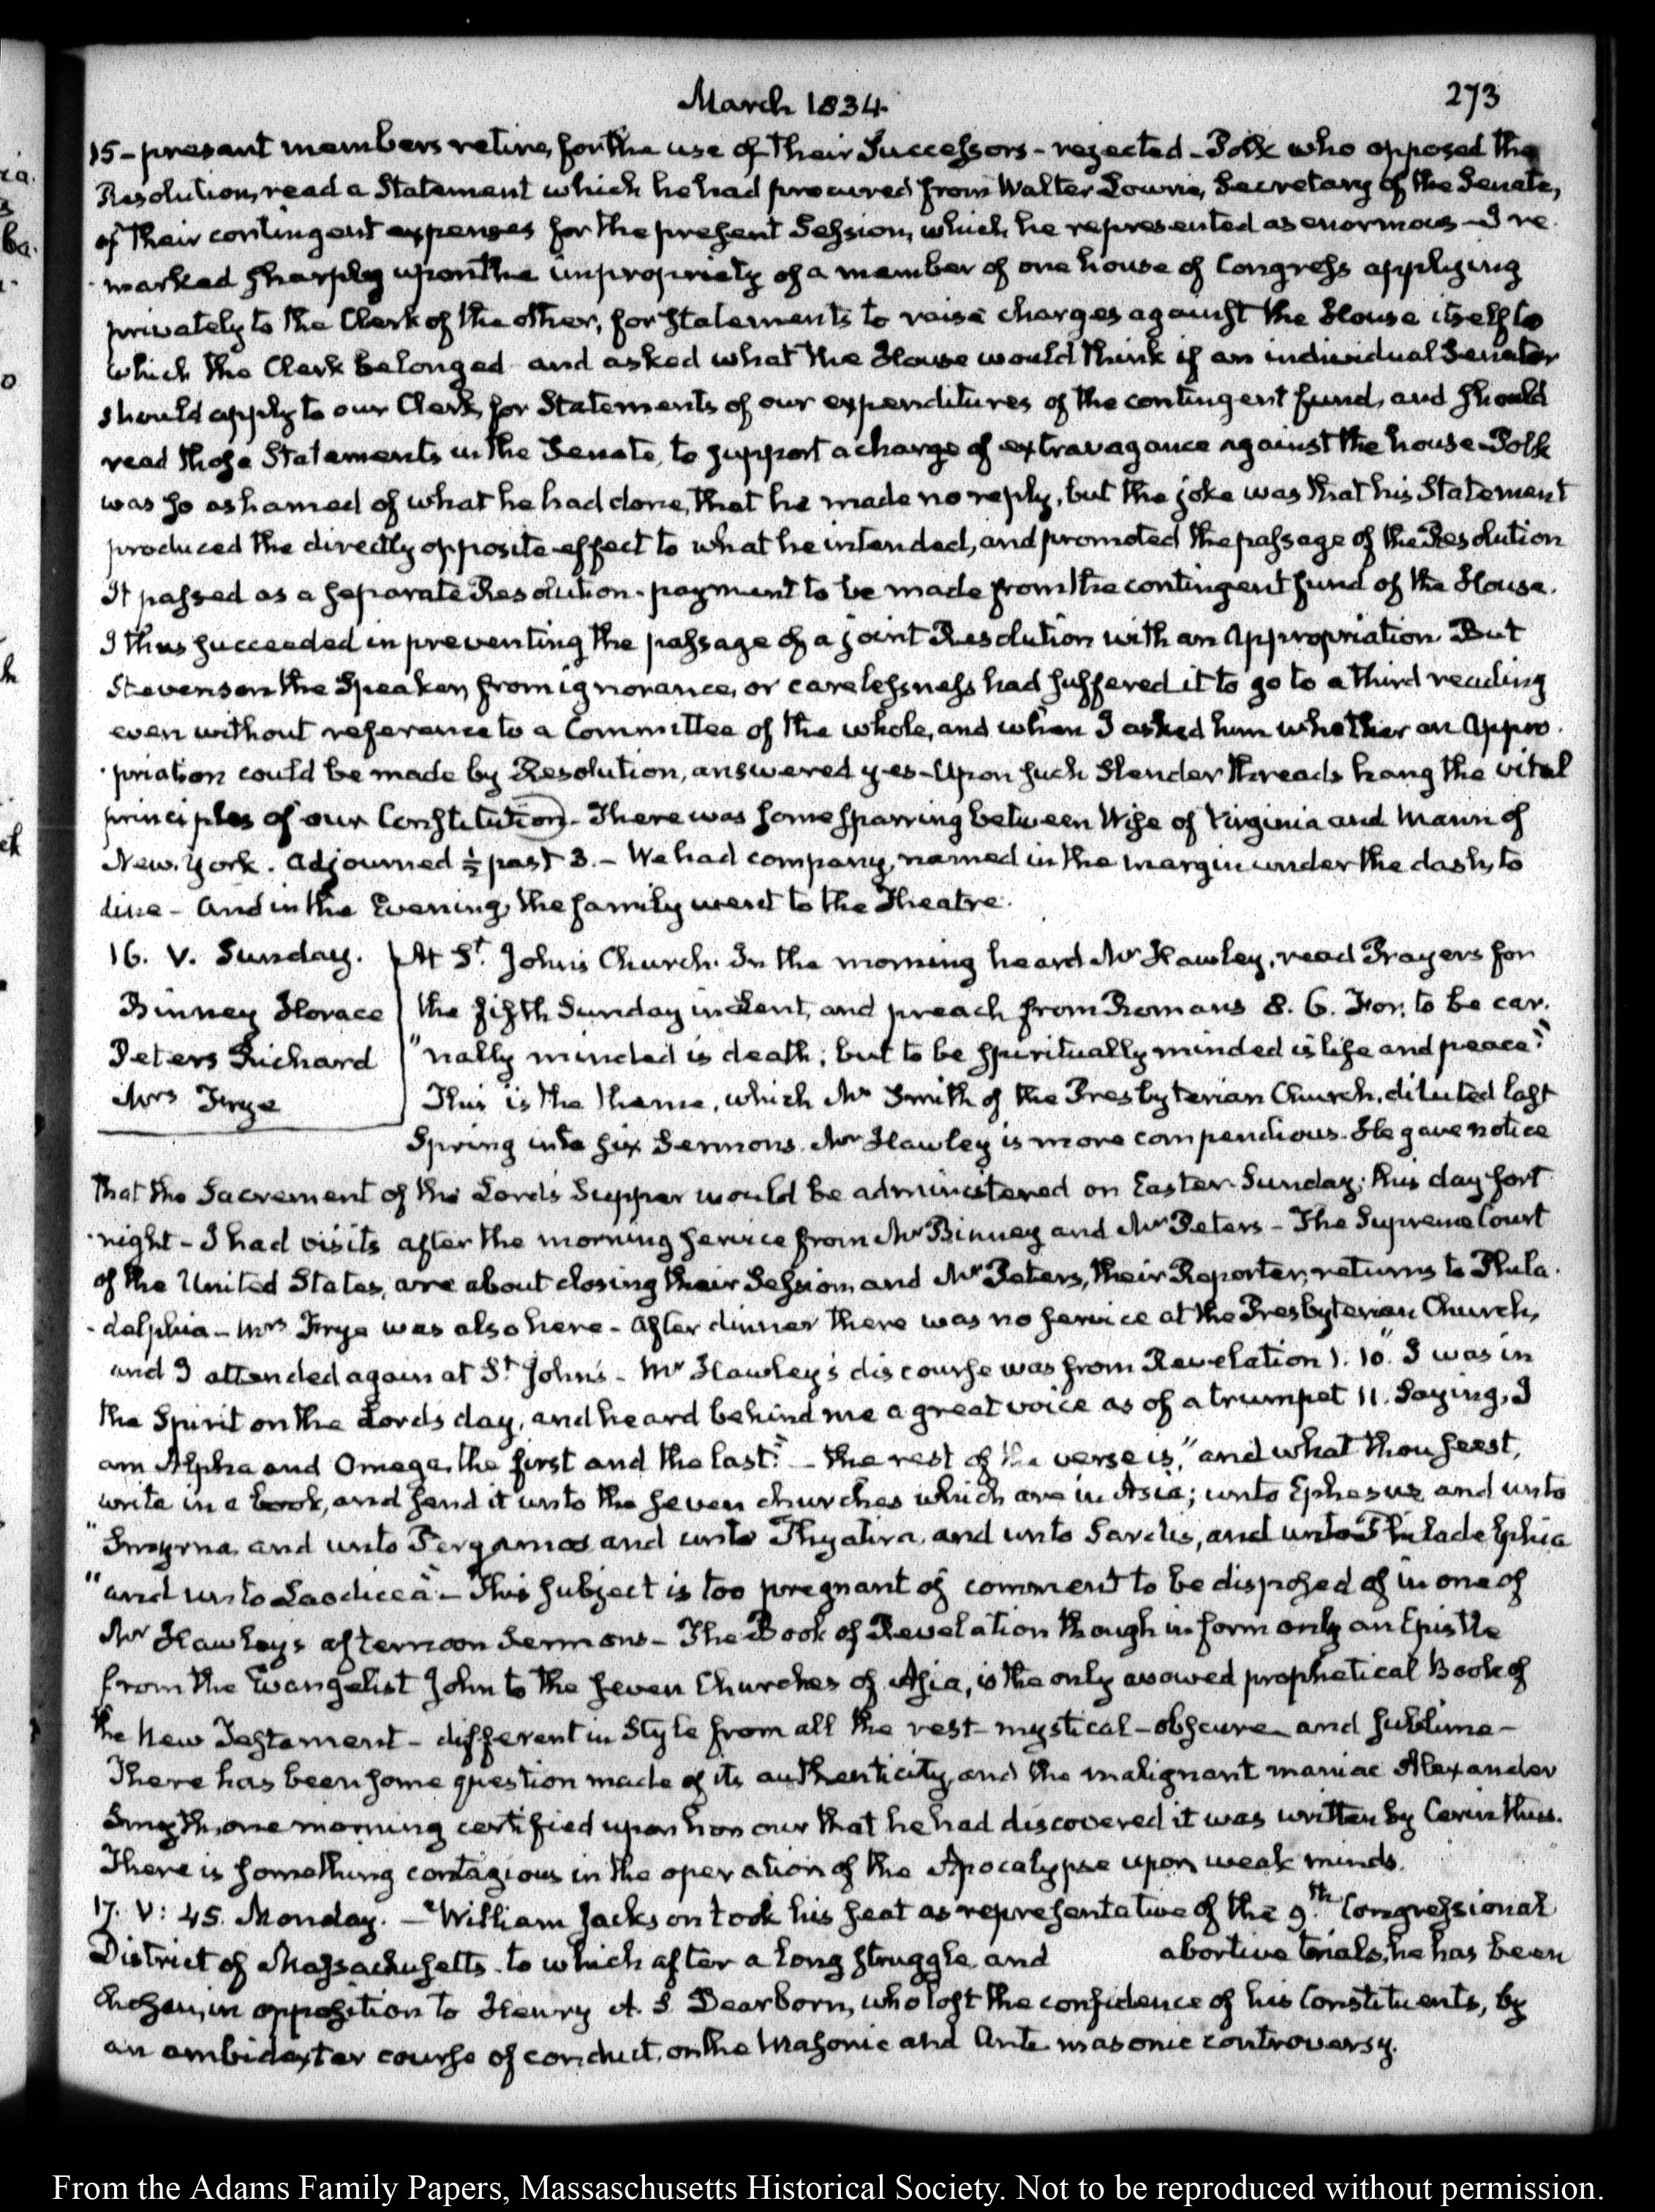 March 1834.
273
15 - present members retire, for the use of their Successors - rejected - Polk who opposed the
Resolution, read a Statement which he had procured from Walter Lowrie, Secretary of the Senate,
of their contingent expenses for the present Session, which he represented as enormous - I re-
marked sharply upon the impropriety of a member of one house of Congress applying
privately to the Clerk of the other, for statements to raise charges against the House itself to
which the Clerk belonged and asked what the House would think if an individual Senator
should apply to our Clerk, for Statements of our expenditures of the contingent fund, and should
read those Statements in the Senate, to support a charge of extravagance against the house - Polk
was so ashamed of what he had done, that he made no reply, but the joke was that his Statement
produced the directly opposite effect to what he intended, and promoted the passage of the Resolution
It passed as a separate Resolution - payment to be made from the contingent fund of the House.
I thus succeeded in preventing the passage of a joint Resolution with an Appropriation But
Stevenson the Speaker, from ignorance, or carelessness had suffered it to go to a third reading
even without reference to a Committee of the whole, and when I asked him whether an Appro-
priation could be made by Resolution, answered yes - Upon such slender threads hang the vital
principles of our Constitution - There was some sparring between Wise of Virginia and Mann of
New-York. Adjourned ½ past 3. - We had company, named in the margin under the dash, to
dine - And in the Evening, the family went to the Theatre.
16. V. Sunday.
Binney Horace
Peters Richard
Mrs Frye
At St. John's Church. In the morning heard Mr Hawley, read Prayers for
the fifth Sunday in Lent, and preach from Romans 8. 6. For, to be car-
"nally minded is death; but to be spiritually minded is life and peace."
This is the theme, which Mr Smith of the Presbyterian Church, diluted last
Spring into six Sermons. Mr Hawley is more compendious. He gave notice
that the Sacrement of the Lord's Supper would be administered on Easter-Sunday; this day fort-
night - I had visits after the morning service from Mr Binney and Mr Peters - The Supreme Court
of the United States, are about closing their Session, and Mr Peters, their Reporter, returns to Phila-
delphia - Mrs Frye was also here - After dinner there was no service at the Presbyterian Church,
and I attended again at St John's - Mr Hawley's discourse was from Revelation 1. 10. "I was in
the Spirit on the Lords day, and heard behind me a great voice as of a trumpet 11. Saying, I
am Alpha and Omega, the first and the last:" - the rest of the verse is, "and what thou seest,
write in a book, and send it unto the seven churches which are in Asia; unto Ephesus, and unto
"Smyrna, and unto Pergamos and unto Thyatira, and unto Sardis, and unto Philadelphia
"and unto Laodicea" - This subject is too pregnant of comment to be disposed of in one of
Mr Hawleys afternoon Sermons - The Book of Revelation though in form only an Epistle
from the Evangelist John to the seven Churches of Asia, is the only avowed prophetical Book of
the New Testament - different in Style from all the rest - mystical - obscure and sublime -
There has been some question made of its authenticity, and the malignant maniac Alexander
Smyth, one morning certified upon honour that he had discovered it was written by Cerinthus.
There is something contagious in the operation of the Apocalypse upon weak minds.
17. V: 45. Monday. - William Jackson took his seat as representative of the 9th. Congressional
District of Massachusetts. to which after a long struggle, and abortive trials, he has been
chosen, in opposition to Henry A. S. Dearborn, who lost the confidence of his Constituents, by
an ambidexter course of conduct, on the Masonic and Anti-masonic controversy.
From the Adams Family Papers, Massachusetts Historical Society. Not to be reproduced without permission.